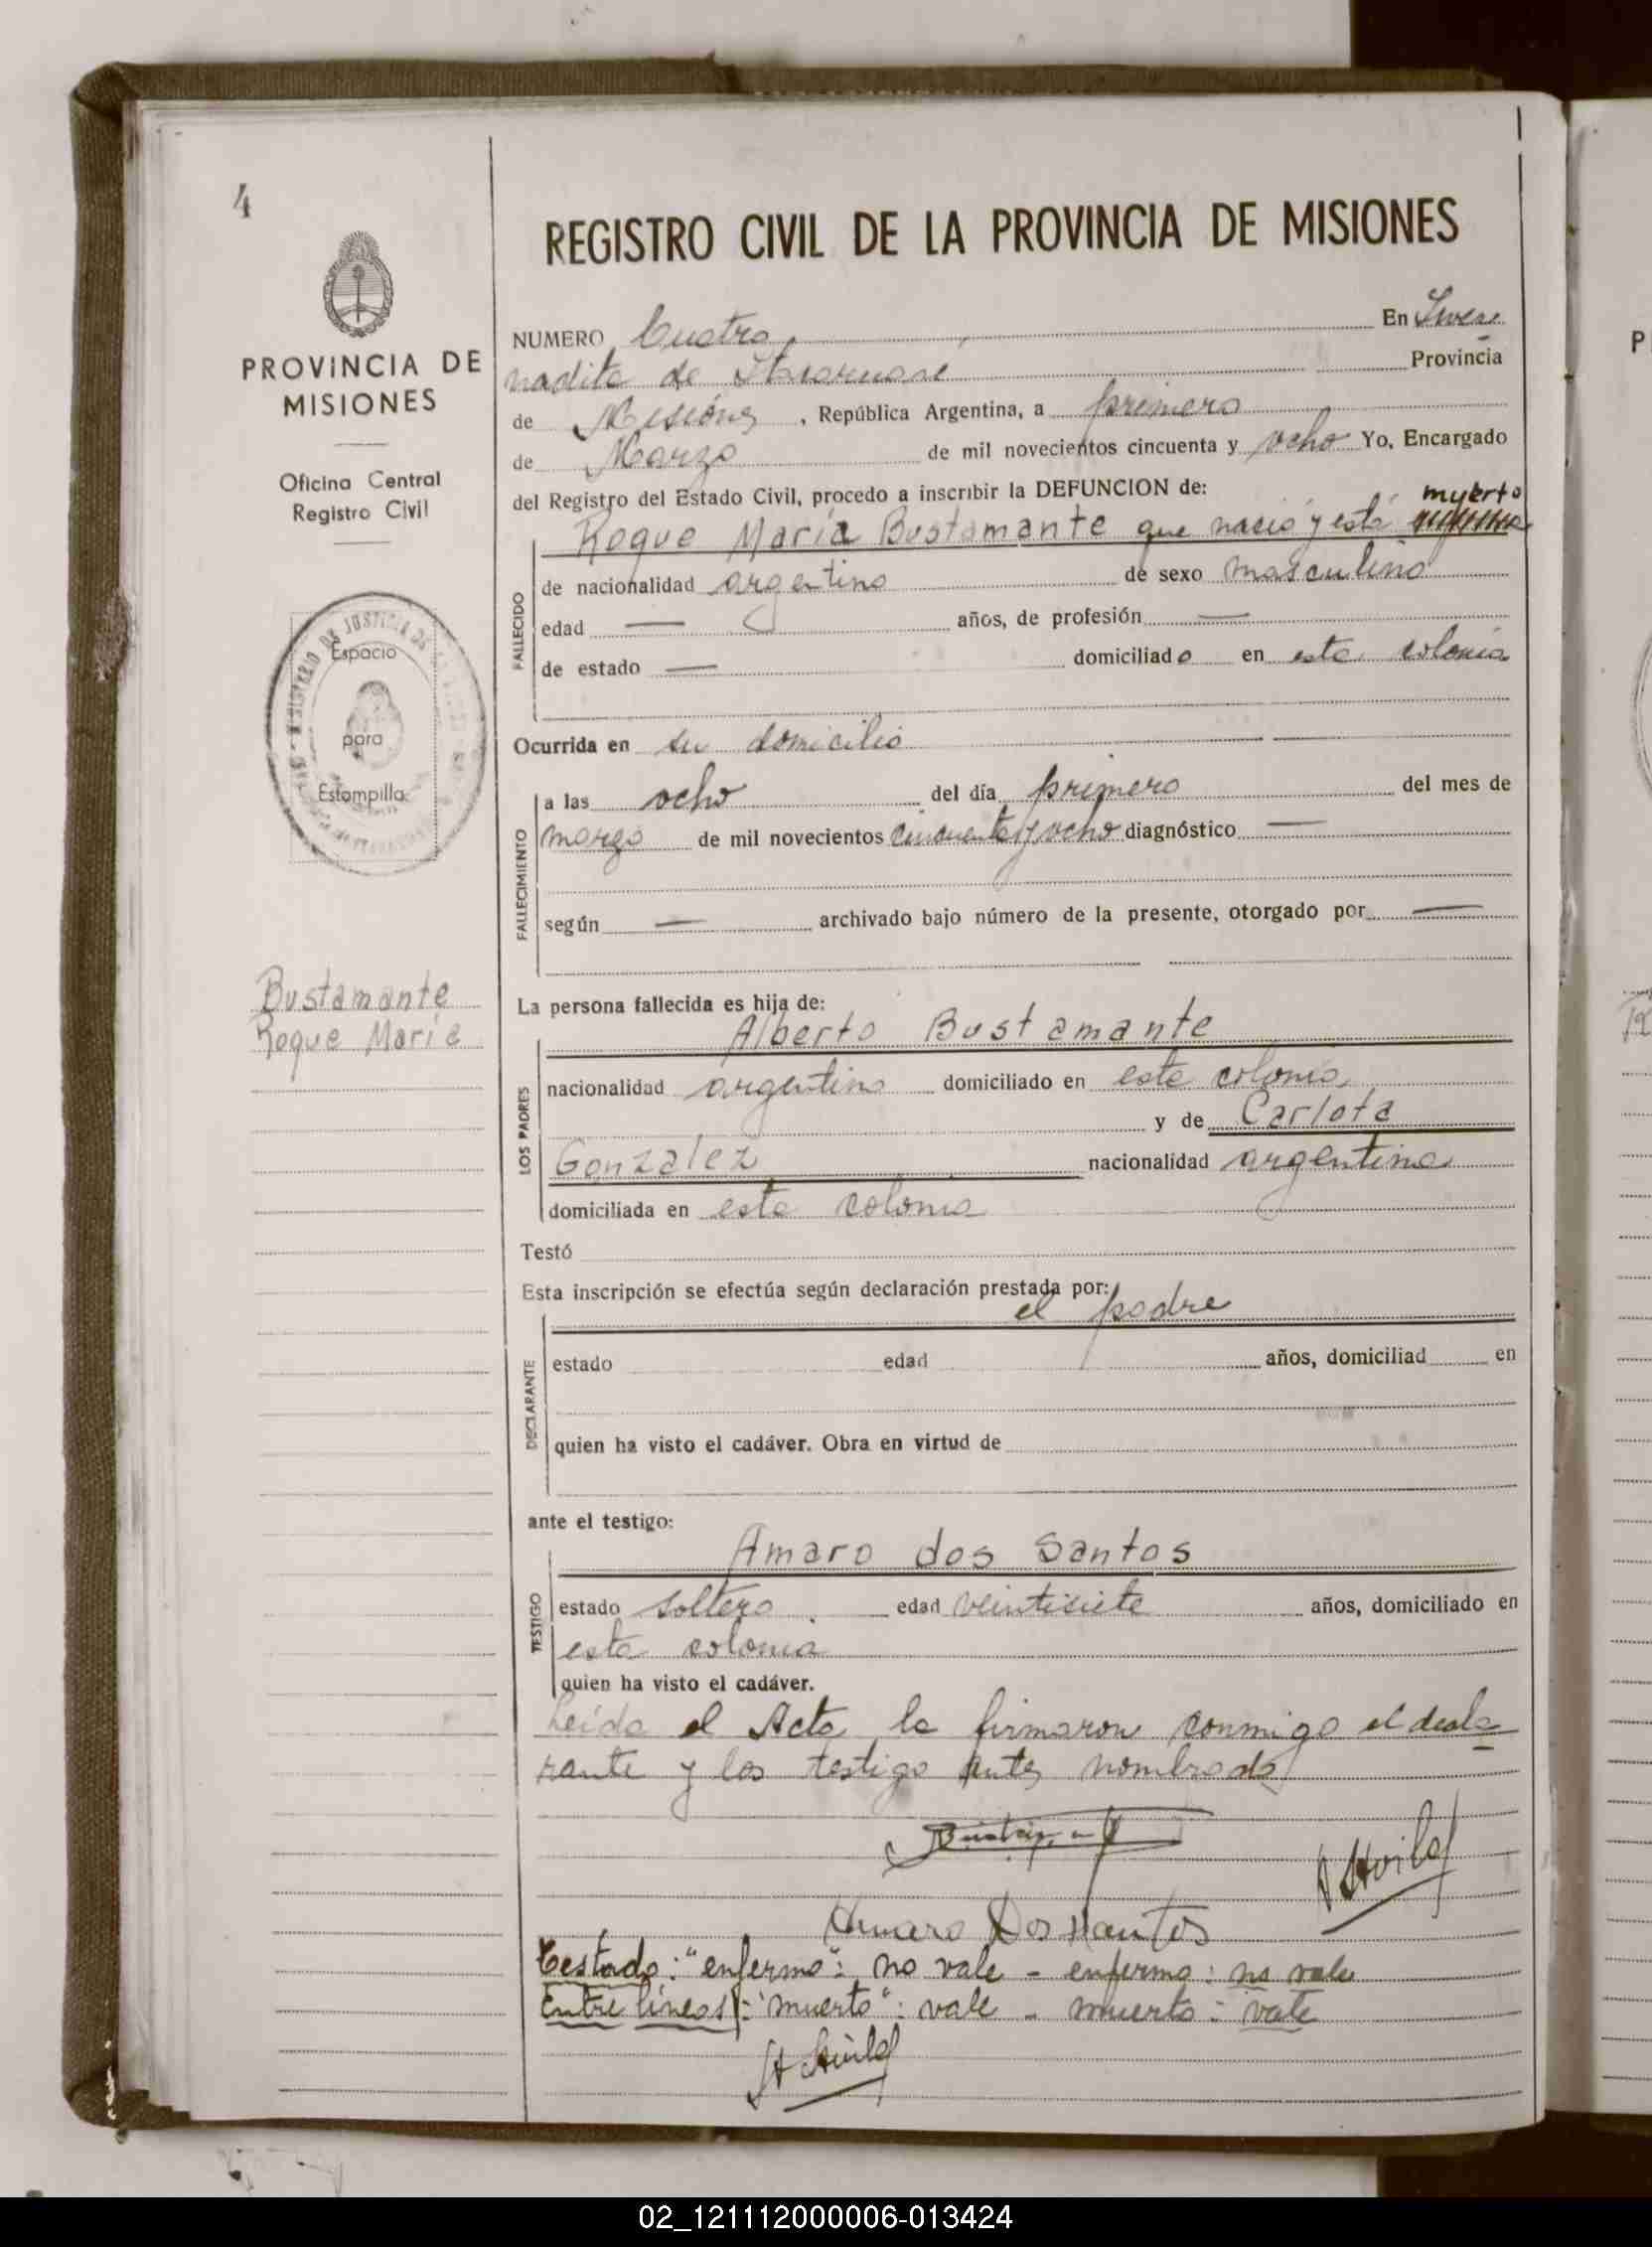 4
REGISTRO CIVIL DE LA PROVINCIA DE MISIONES
PROVINCIA DE
MISIONES
Oficina Central
Registro Civil
Espacio
para
Estampilla
Bustamante
Roque María
NUMERO Cuatro En
de Provincia
de Misiones, República Argentina, a primero
de Marzo de mil novecientos cincuenta y ocho Yo, Encargado
del Registro del Estado Civil, procedo a inscribir la DEFUNCION de:
muerto
Roque María Bustamante que nació y está
FALLECIDO
de nacionalidad argentino de sexo masculino
edad — años, de profesión —
de estado — domiciliado en esta colonia
Ocurrida en su domicilio
FALLECIMIENTO
a las ocho del día primero del mes de
marzo de mil novecientos cincuenta y ocho diagnóstico —
según — archivado bajo número de la presente, otorgado por —
La persona fallecida es hija de:
LOS PADRES
Alberto Bustamante
nacionalidad argentino domiciliado en esta colonia
y de Carlota
Gonzalez nacionalidad argentina
domiciliada en esta colonia
Testó
Esta inscripción se efectúa según declaración prestada por:
el padre
DECLARANTE
estado edad años, domiciliad en
quien ha visto el cadáver. Obra en virtud de
ante el testigo:
Amaro dos Santos
TESTIGO
estado soltero edad veintisiete años, domiciliado en
esta colonia
quien ha visto el cadáver.
Leída el Acta la firmaron conmigo el decla
rante y los testigo antes nombrado
Amaro Dos Santos
Testado: "enfermo": no vale - enfermo: no vale
Entre líneas: "muerto": vale - muerto: vale
02_121112000006-013424